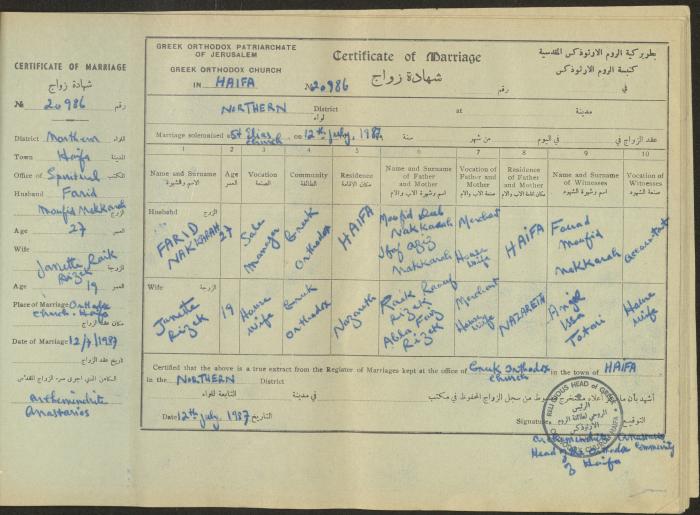 CERTIFICATE OF MARRIAGE
شهادة زواج
№ 20986 رقم
District Northern لواء
Town Haifa المدينة
Office of Spiritual المكتب
Husband Farid
Moufid Nakkarah الزوج
Age 27 العمر
Wife
Janette Raik
Rizek الزوجة
Age 19 العمر
Place of Marriage Orthodox
Church - Haifa
مكان عقد الزواج
Date of Marriage 12/7/1987
تاريخ عقد الزواج
Archimindrite
Anastasios
GREEK ORTHODOX PATRIARCHATE
OF JERUSALEM
GREEK ORTHODOX CHURCH
IN HAIFA
Certificate of Marriage
شهادة زواج
№ 20986 رقم
بطويركية الروم الارثوذكس المقدسية
كنيسة الروم الارثوذكس
في
NORTHERN District at مدينة
لواء
Marriage solemnised St Elias Church on 12th July, 1987 سنة من شهر في اليوم عقد الزواج في
1 2 3 4 5 6 7 8 9 10
Name and Surname Age Vocation Community Residence Name and Surname of Father and Mother Vocation of Father and Mother Residence of Father and Mother Name and Surname of Witnesses Vocation of Witnesses
الاسم والشهرة العمر الصنعة الطائفة مكان الاقامة اسم وشهرة الاب والام صنعة الاب والام مكان اقامة الاب والام اسم وشهرة الشهود صنعة الشهود
Husband الزوج
FARID NAKKARAH 27 Sale Manager Greek Orthodox HAIFA Moufid Deeb Nakkarah Merchant HAIFA Fouad Moufid Nakkarah Accountant
Nakkarah House wife
Wife الزوجة
Janette Rizek 19 House wife Greek Orthodox Nazareth Raik Raouf Rizek Merchant NAZARETH House wife
Rizek House wife
Certified that the above is a true extract from the Register of Marriages kept at the office of Greek Orthodox Church in the town of HAIFA
in the NORTHERN District التابعة للواء في مدينة
Date 12th July, 1987 التاريخ
Signature التوقيع
RELIGIOUS HEAD of GREEK
ORTHODOX CHURCH HAIFA
الرئيس
الروحي لطائفة الروم
الارثوذكس
Archimindrite Anastasios
Head of the Orthodox Community
of Haifa